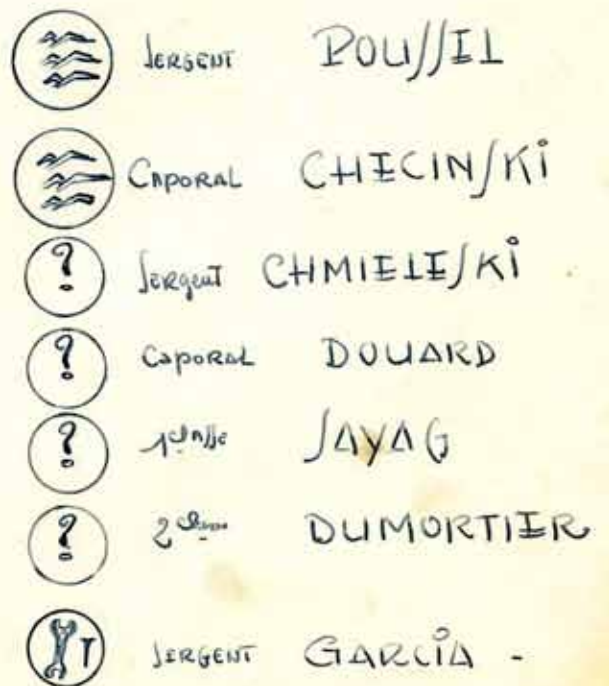 SERGENT POUSSIL
CAPORAL CHICINSKI
? Sergent CHMIELESKI
? Caporal DOUARD
? 1 classe SAYAG
? 2 classe DUMORTIER
SERGENT GARCIA -